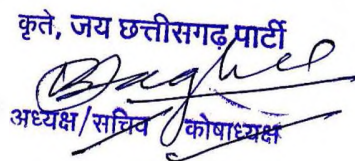 कृते, जय छत्तीसगढ़ पार्टी
Baghel
अध्यक्ष/सचिव / कोषाध्यक्ष